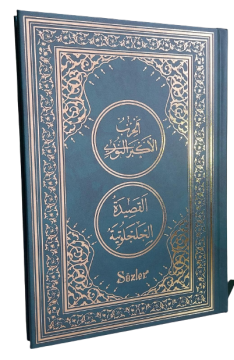 الحزب
الأكبر النوري
القصيدة
الجلجلوتية
Sözler